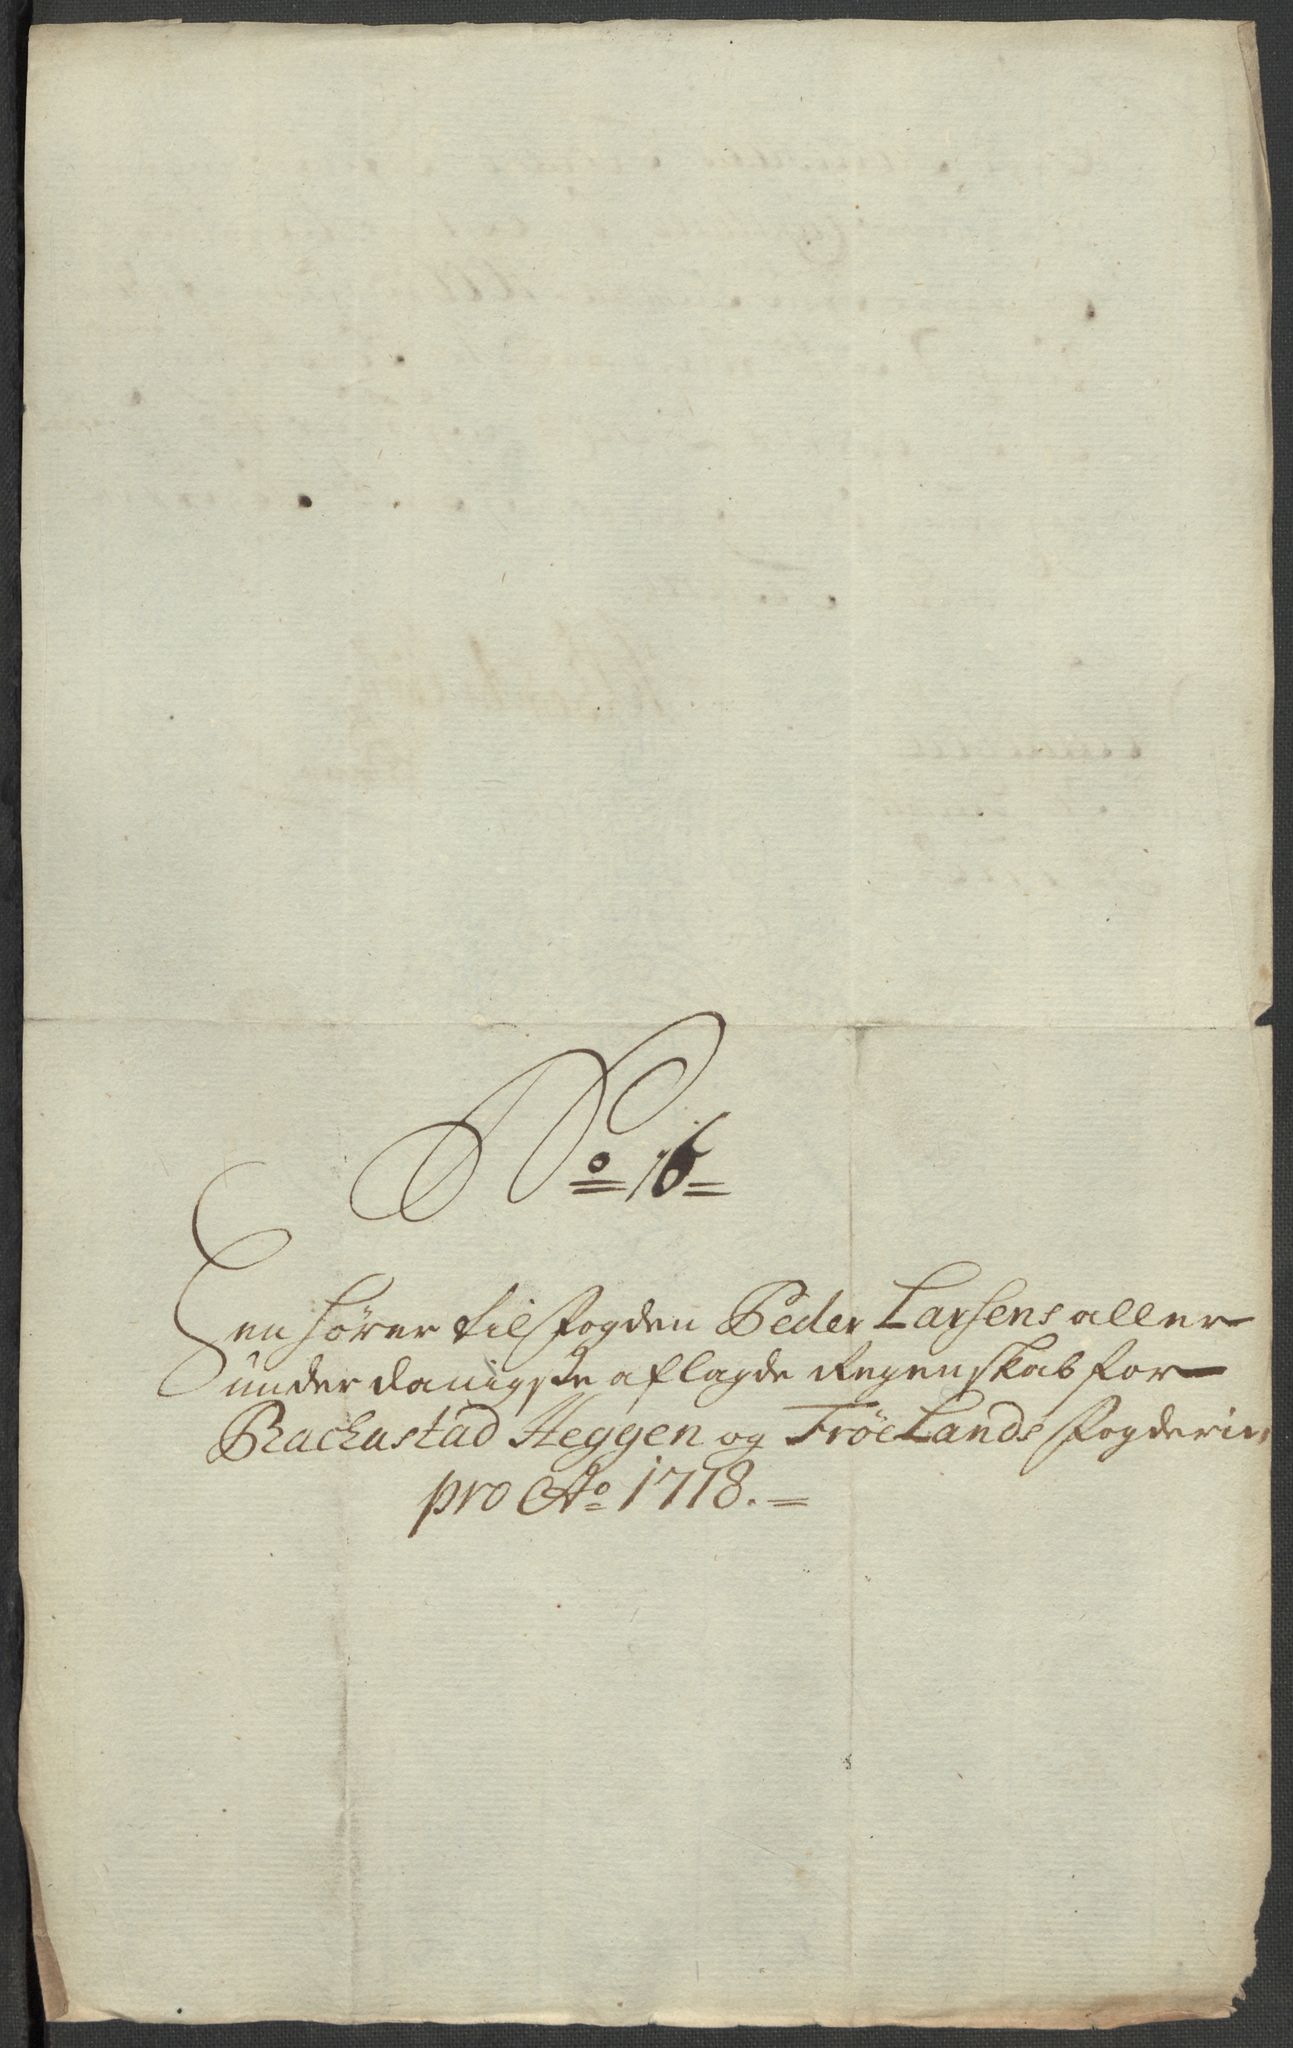 No 16
Henhører til Fogden Peder Larsens aller
underdanigste aflagde Regenskab for
Rackestad Heggen og Frøelands Fogderie
pro Ao 1718.